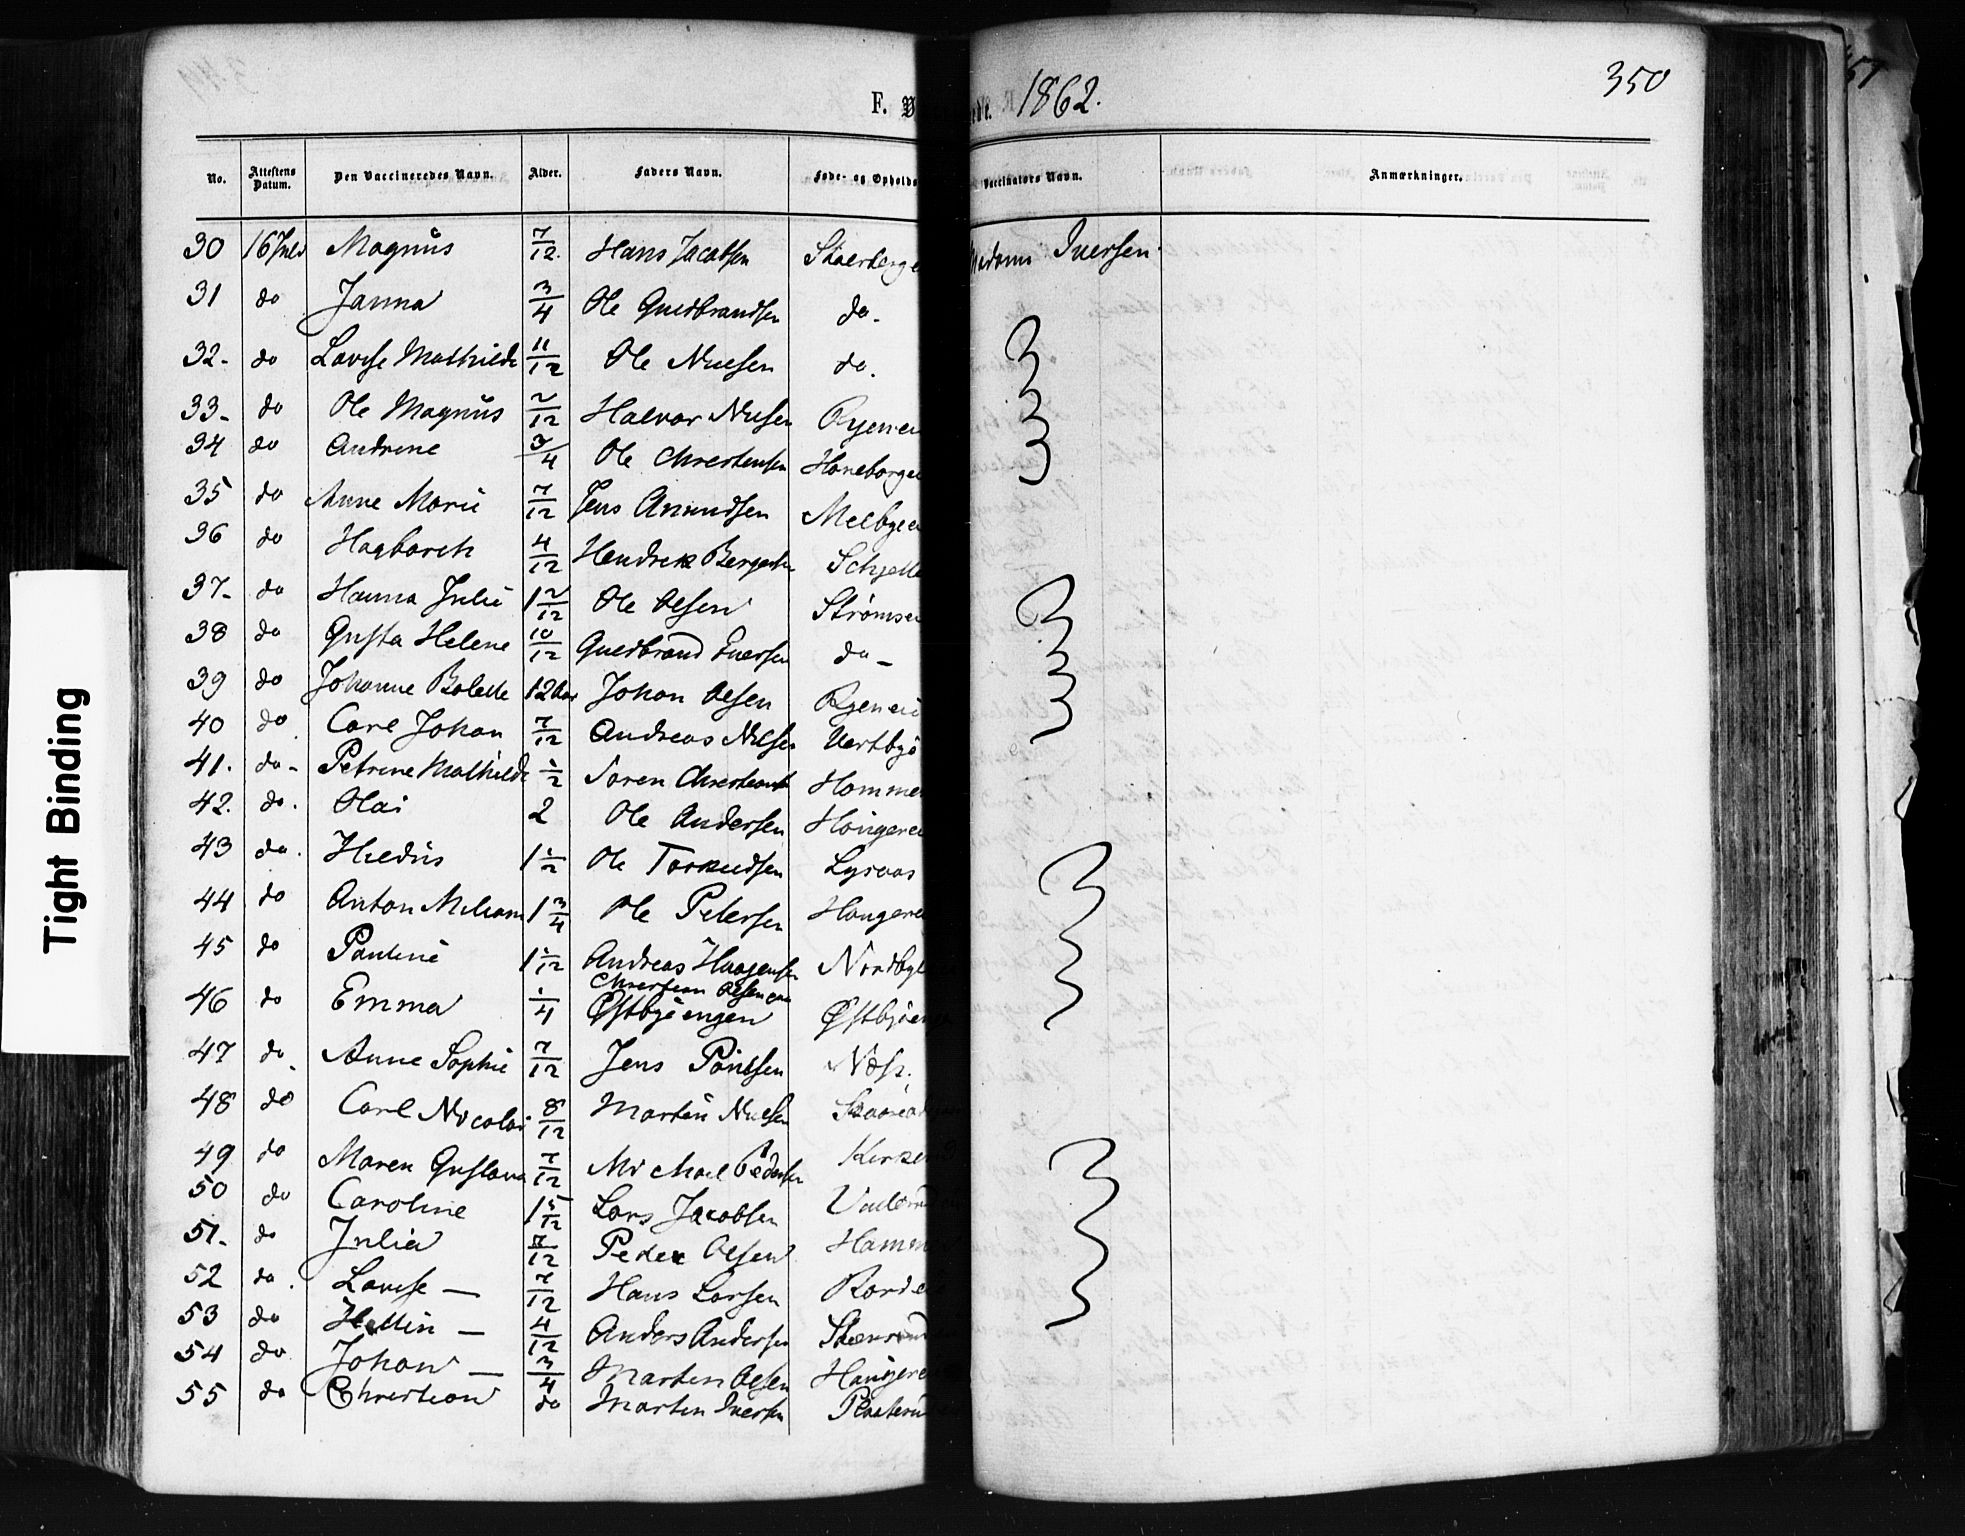 350
F. V dte. 1862.
No. Attestens Datum. Den Vaccineredes Navn. Alder. Faders Navn. Føde- og Opholds Vaccinators Navn. Anmærkninger.
30 16 Juli Magnus 7/12. Hans Jacobsen Madam Iversen
31 do Janna 3/4 Ole Gudbrandsen do.
32. do Lovise Mathilde 11/12 Ole Nielsen do.
33. do Ole Magnus 2/12 Halvor Nielsen Ryenei
34 do Andrine 3/4 Ole Christensen Honeborgei
35 do Anne Marie 7/12 Jens Amundsen Melbyei
36 do Hagbarth 4/12 Hendrik Schjelle
37. do Hanna Julie 1 2/12 Ole Olsen Strømsei
38 do Gusta Helene 10/12 Gudbrand Iversen do
39 do Johanne Bolette 12 Aar Johan Olsen Ryenei
40 do Carl Johan 7/12 Andreas Nilsen
41. do Petrine Mathilde 1/2 Soren Homme
42. do. Olai 2 Ole Andersen
43 do. 1 1/2 Ole Lysaas
44 do Anton 1 3/4 Ole Petersen
45 do Pauline 1 1/12 Andreas Haagensen Nordby
46 do Emma 1/4 Christian Olsen Østbyeengen Østbyeen
47 do. Anne Sophie 7/12 Jens Poulsen Næss.
48 do Carl Nicolai 8/12 Martin Nielsen
49 do Maren Gustava 7/12 Michael Pedersen
50 do Caroline 1 5/12 Lars Jacobsen
51. do Julia 7/12 Peder Olsen Hamm
52 do. Lovise 7/12 Hans Larsen
53 do 4/12 Anders Andersen
54 do Johan 3/4 Martin Olsen
55 do Christian do Martin Iversen
Tight Binding